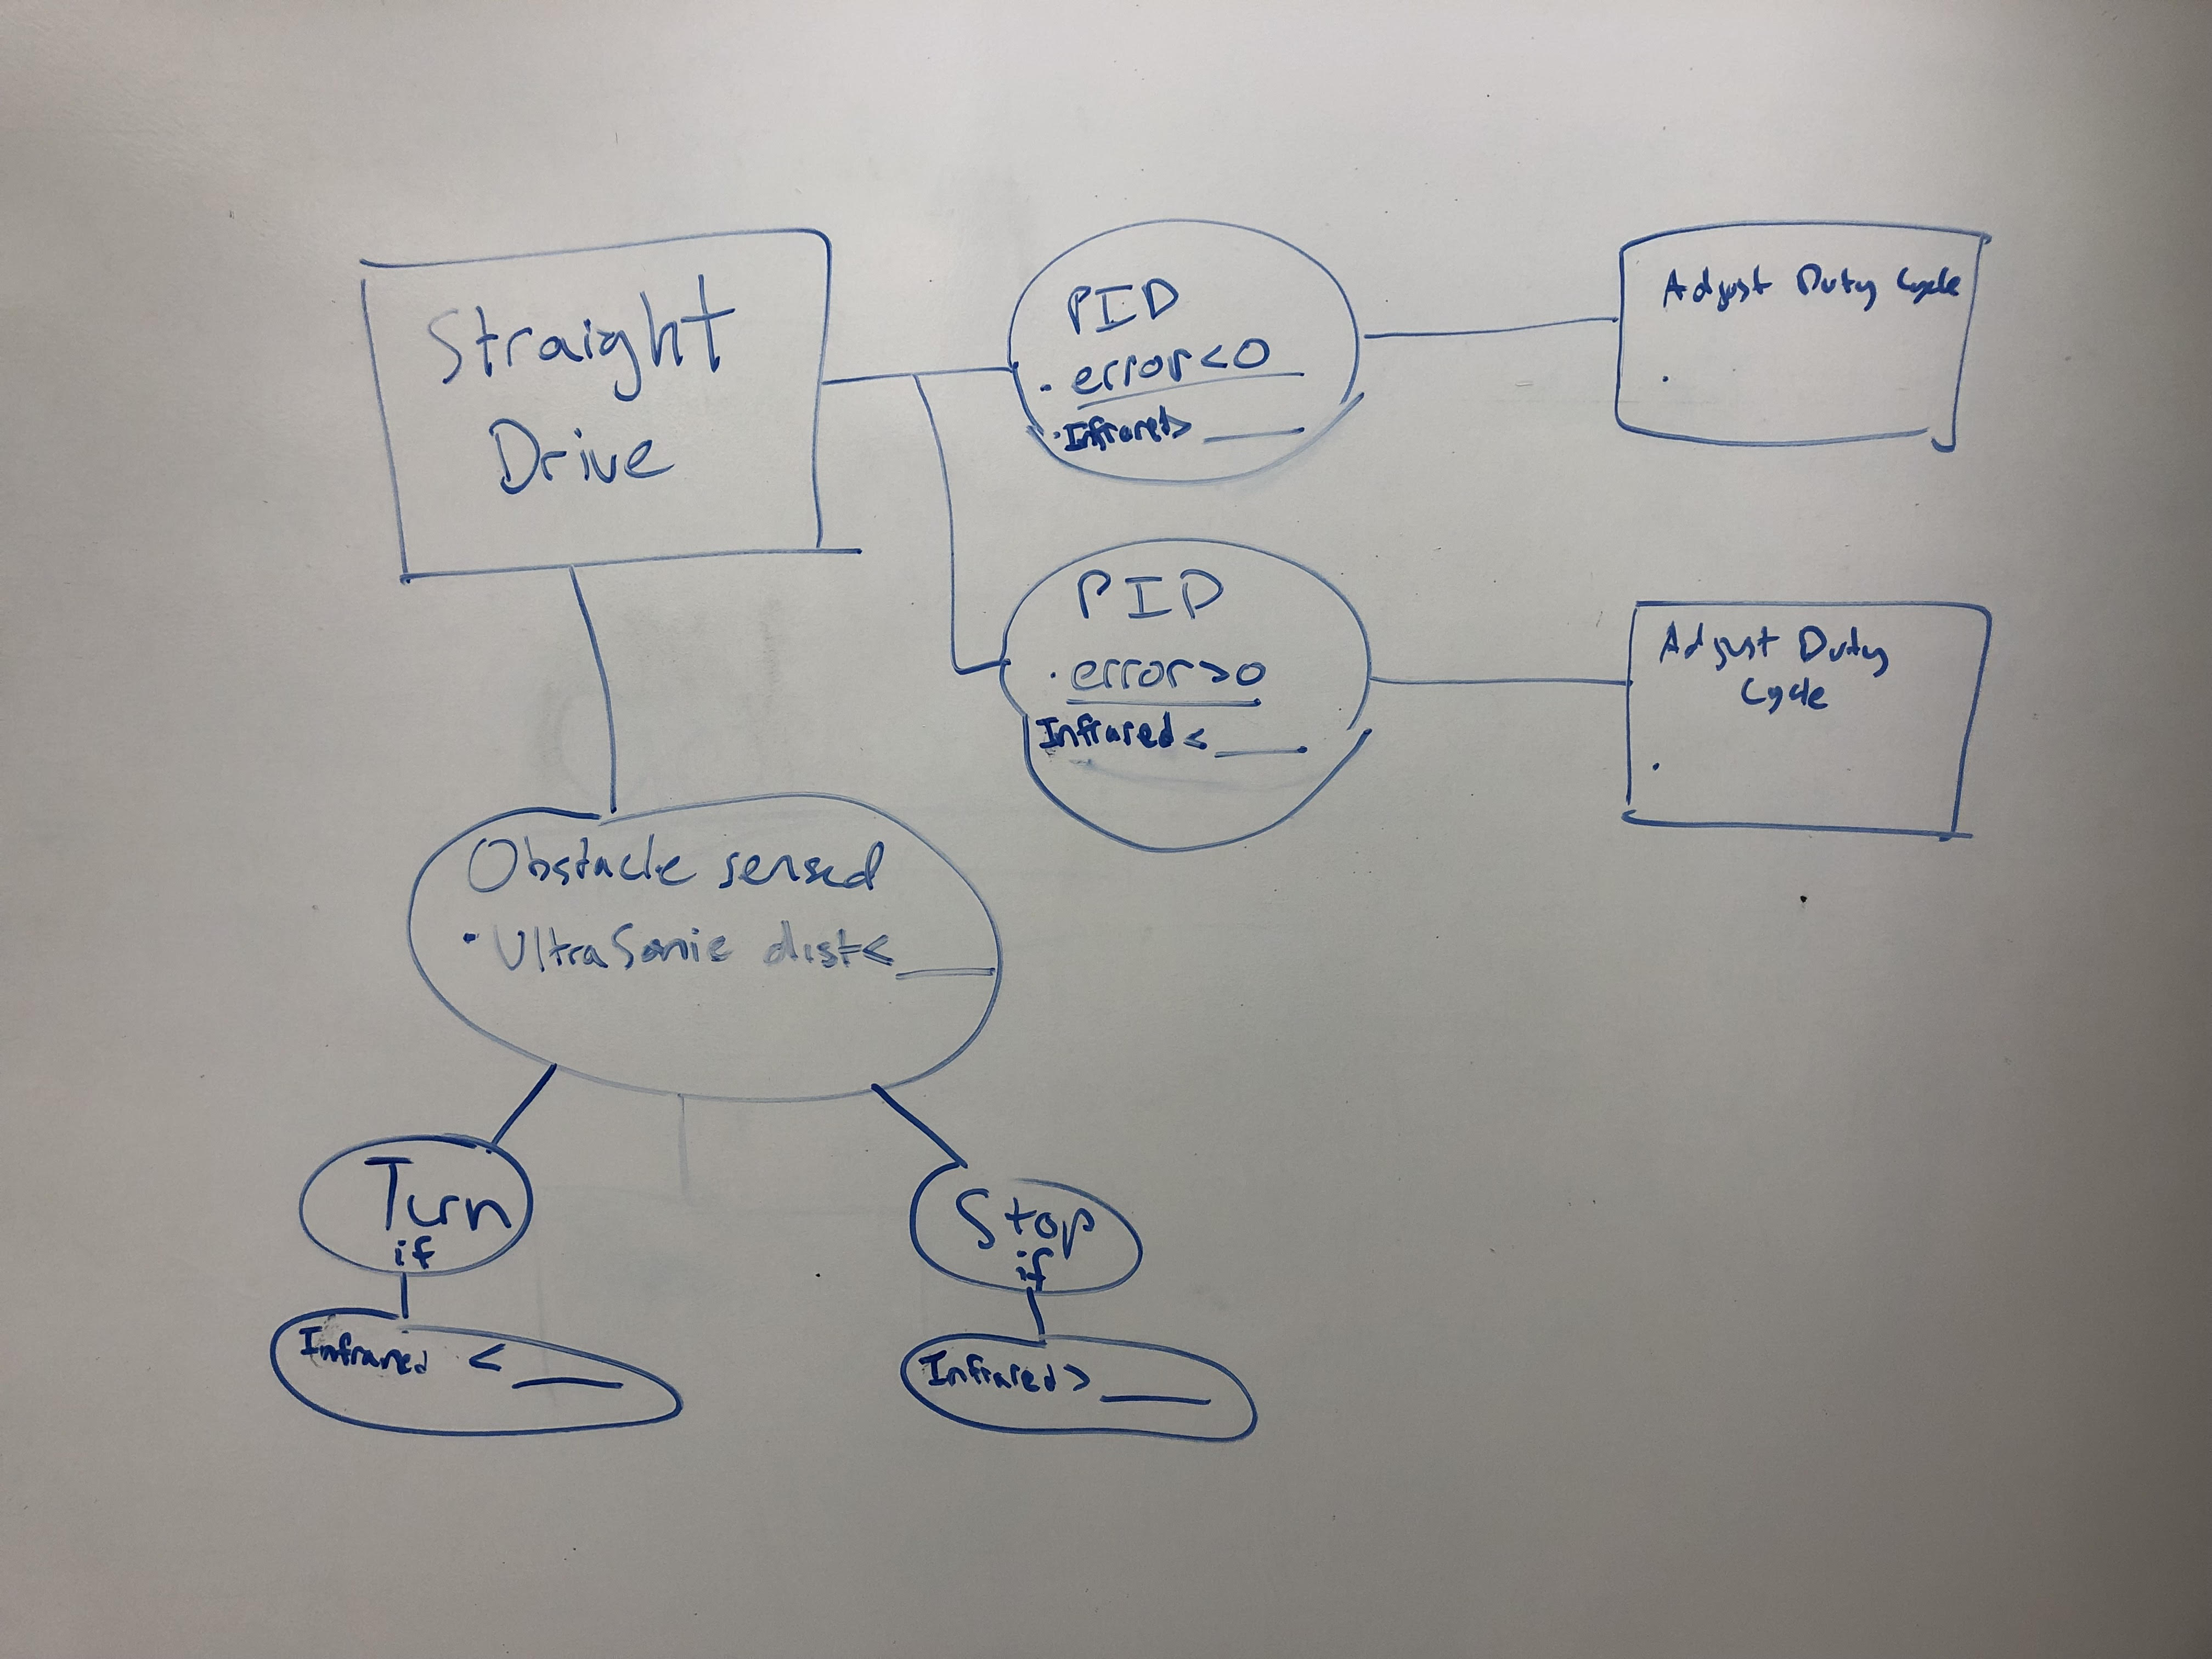 Straight
Drive
PID
· error<0
· Infrared> ____
Adjust Duty Cycle
·
PID
· error>0
Infrared < ____
Adjust Duty
Cycle
·
Obstacle sensed
· UltraSonic dist< ____
Turn
if
Infrared < ____
Stop
if
Infrared > ____